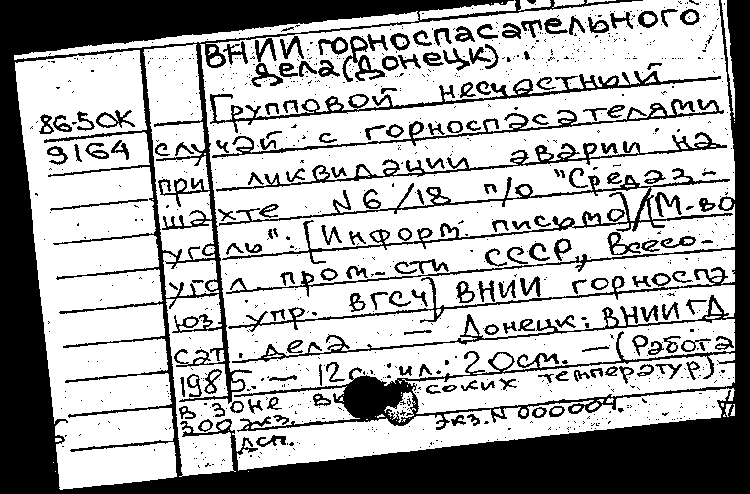 ВНИИ горноспасательного
дела (Донецк).
Групповой несчастный
86-50К
9164
случай с горноспасателями
при ликвидации аварии на
шахте N 6/18 п/о "Средаз-
уголь": [Информ. письмо] / [М-во
угол. пром-сти СССР, Всесо-
юз. упр. ВГСЧ], ВНИИ горноспа-
сат. дела. — Донецк: ВНИИГД
1985. — 12 с.: ил.; 20 см. — (Работа
в зоне высоких температур).
300 экз. Экз. N 000004.
ДСП.